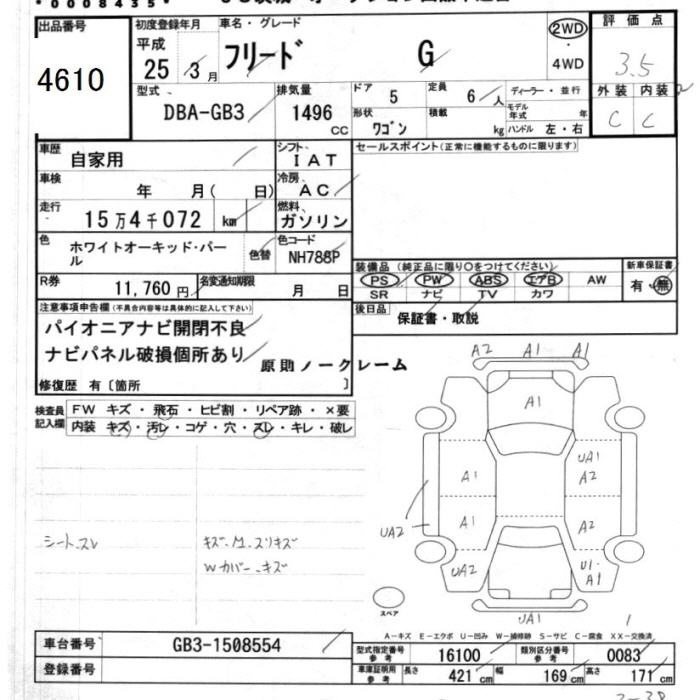 *0008435*
出品番号 4610
初度登録年月 平成 25 3月
車名・グレード フリード G
2WD ・ 4WD
評価点 3.5
外装 内装
C C
型式 DBA-GB3
排気量 1496 CC
ドア 5 定員 6人 ディーラー・並行
形状 ワゴン 積載 kg モデル年式 年
ハンドル 左・右
車歴 自家用
シフト IAT
セールスポイント(正常に機能するものに限ります)
車検 年 月( 日)
冷房 AC
走行 15万4千072 km
燃料 ガソリン
色 ホワイトオーキッド・パール
色替
色コード NH788P
装備品(純正品に限り○をつけてください)
新車保証書
PS PW ABS エアB AW
SR ナビ TV カワ
有・無
R券 11,760円
名変通知期限 月 日
後日品 保証書・取説
注意事項申告欄(不具合内容等は具体的に記入して下さい)
パイオニアナビ開閉不良
ナビパネル破損個所あり
原則ノークレーム
修復歴 有〔箇所 〕
検査員記入欄
FW キズ・飛石・ヒビ割・リペア跡・×要
内装 キズ・汚レ・コゲ・穴・スレ・キレ・破レ
A2 A1 A1
A1
UA1
A1 A2
A1 A2
UA2
UA2 U1 A1
UA1
シートスレ
キズ・スリキズ
Wカバーキズ
スペア
A-キズ E-エクボ U-凹み W-補修跡 S-サビ C-腐食 XX-交換済
車台番号 GB3-1508554
型式指定番号 参考 16100 類別区分番号 参考 0083
登録番号
車庫証明用 参考 長さ 421cm 幅 169cm 高さ 171cm